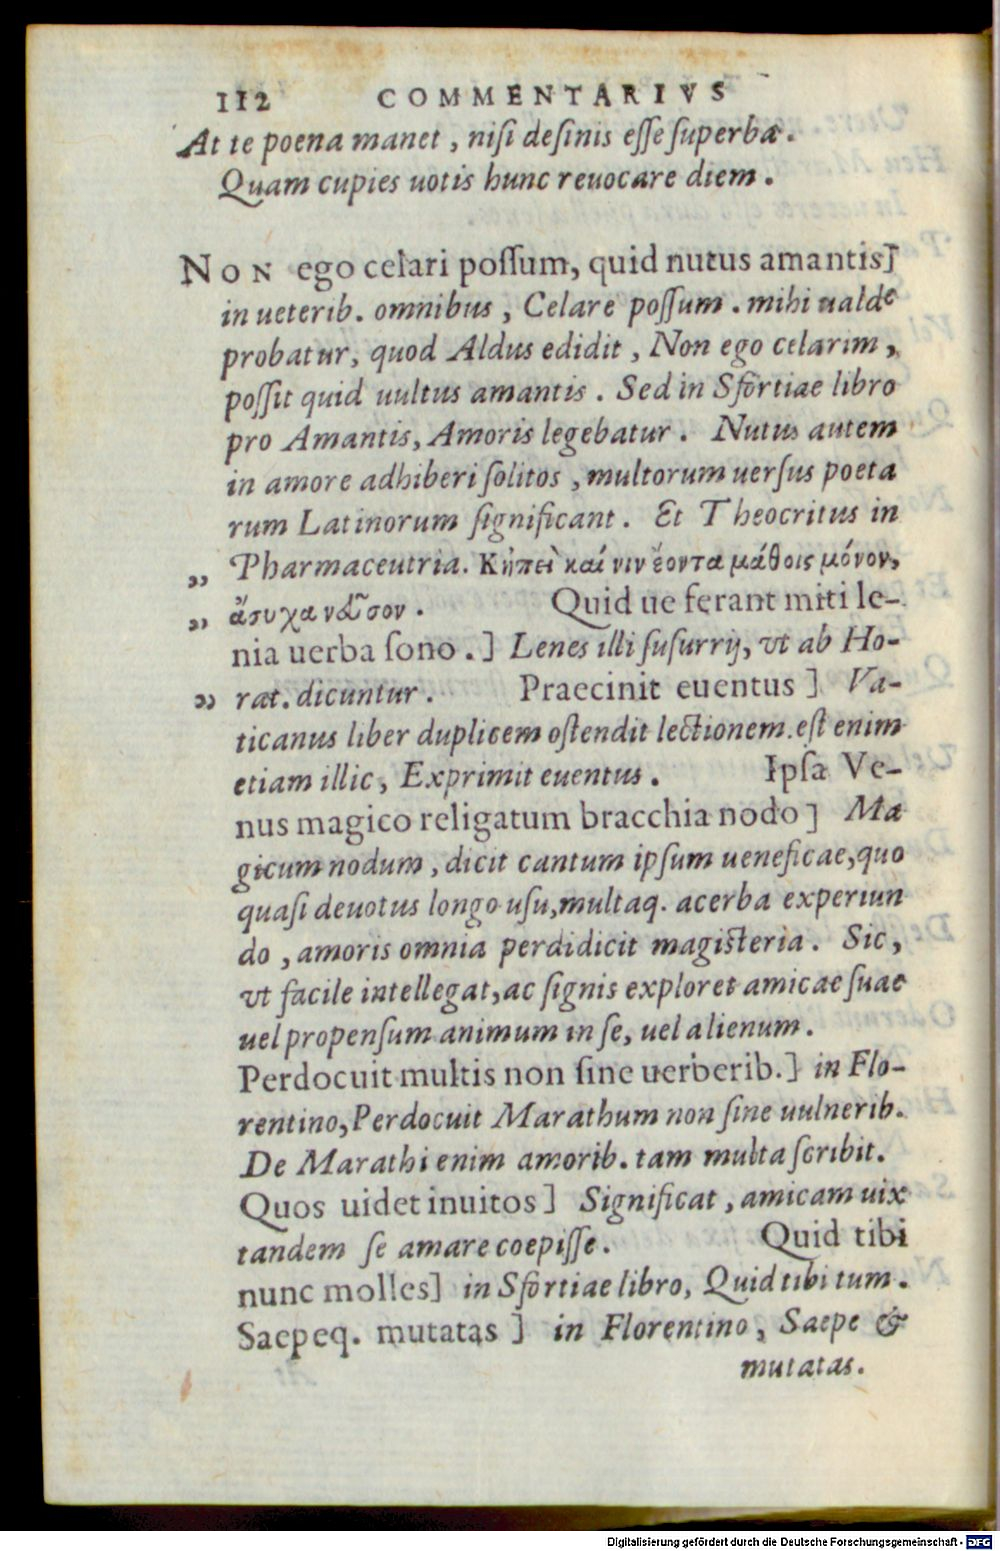 112 COMMENTARIVS
At te poena manet, nisi desinis esse superba.
Quam cupies uotis hunc reuocare diem.
NON ego celari possum, quid nutus amantis]
in ueterib. omnibus, Celare possum. mihi ualde
probatur, quod Aldus edidit, Non ego celarim,
possit quid uultus amantis. Sed in Sfortiae libro
pro Amantis, Amoris legebatur. Nutus autem
in amore adhiberi solitos, multorum uersus poeta
rum Latinorum significant. Et Theocritus in
,, Pharmaceutria. Κἠπεὶ καί νιν ἐόντα μάθοις μόνον,
,, ἅσυχα νεῦσον. Quid ue ferant miti le-
nia uerba sono.] Lenes illi susurrij, vt ab Ho-
,, rat. dicuntur. Praecinit euentus] Va-
ticanus liber duplicem ostendit lectionem. est enim
etiam illic, Exprimit euentus. Ipsa Ve-
nus magico religatum bracchia nodo] Ma
gicum nodum, dicit cantum ipsum ueneficae, quo
quasi deuotus longo usu, multaq. acerba experiun
do, amoris omnia perdidicit magisteria. Sic,
vt facile intellegat, ac signis exploret amicae suae
uel propensum animum in se, uel alienum.
Perdocuit multis non sine uerberib.] in Flo-
rentino, Perdocuit Marathum non sine uulnerib.
De Marathi enim amorib. tam multa scribit.
Quos uidet inuitos] Significat, amicam uix
tandem se amare coepisse. Quid tibi
nunc molles] in Sfortiae libro, Quid tibi tum.
Saepeq. mutatas] in Florentino, Saepe &
mutatas.
Digitalisierung gefördert durch die Deutsche Forschungsgemeinschaft - DFG